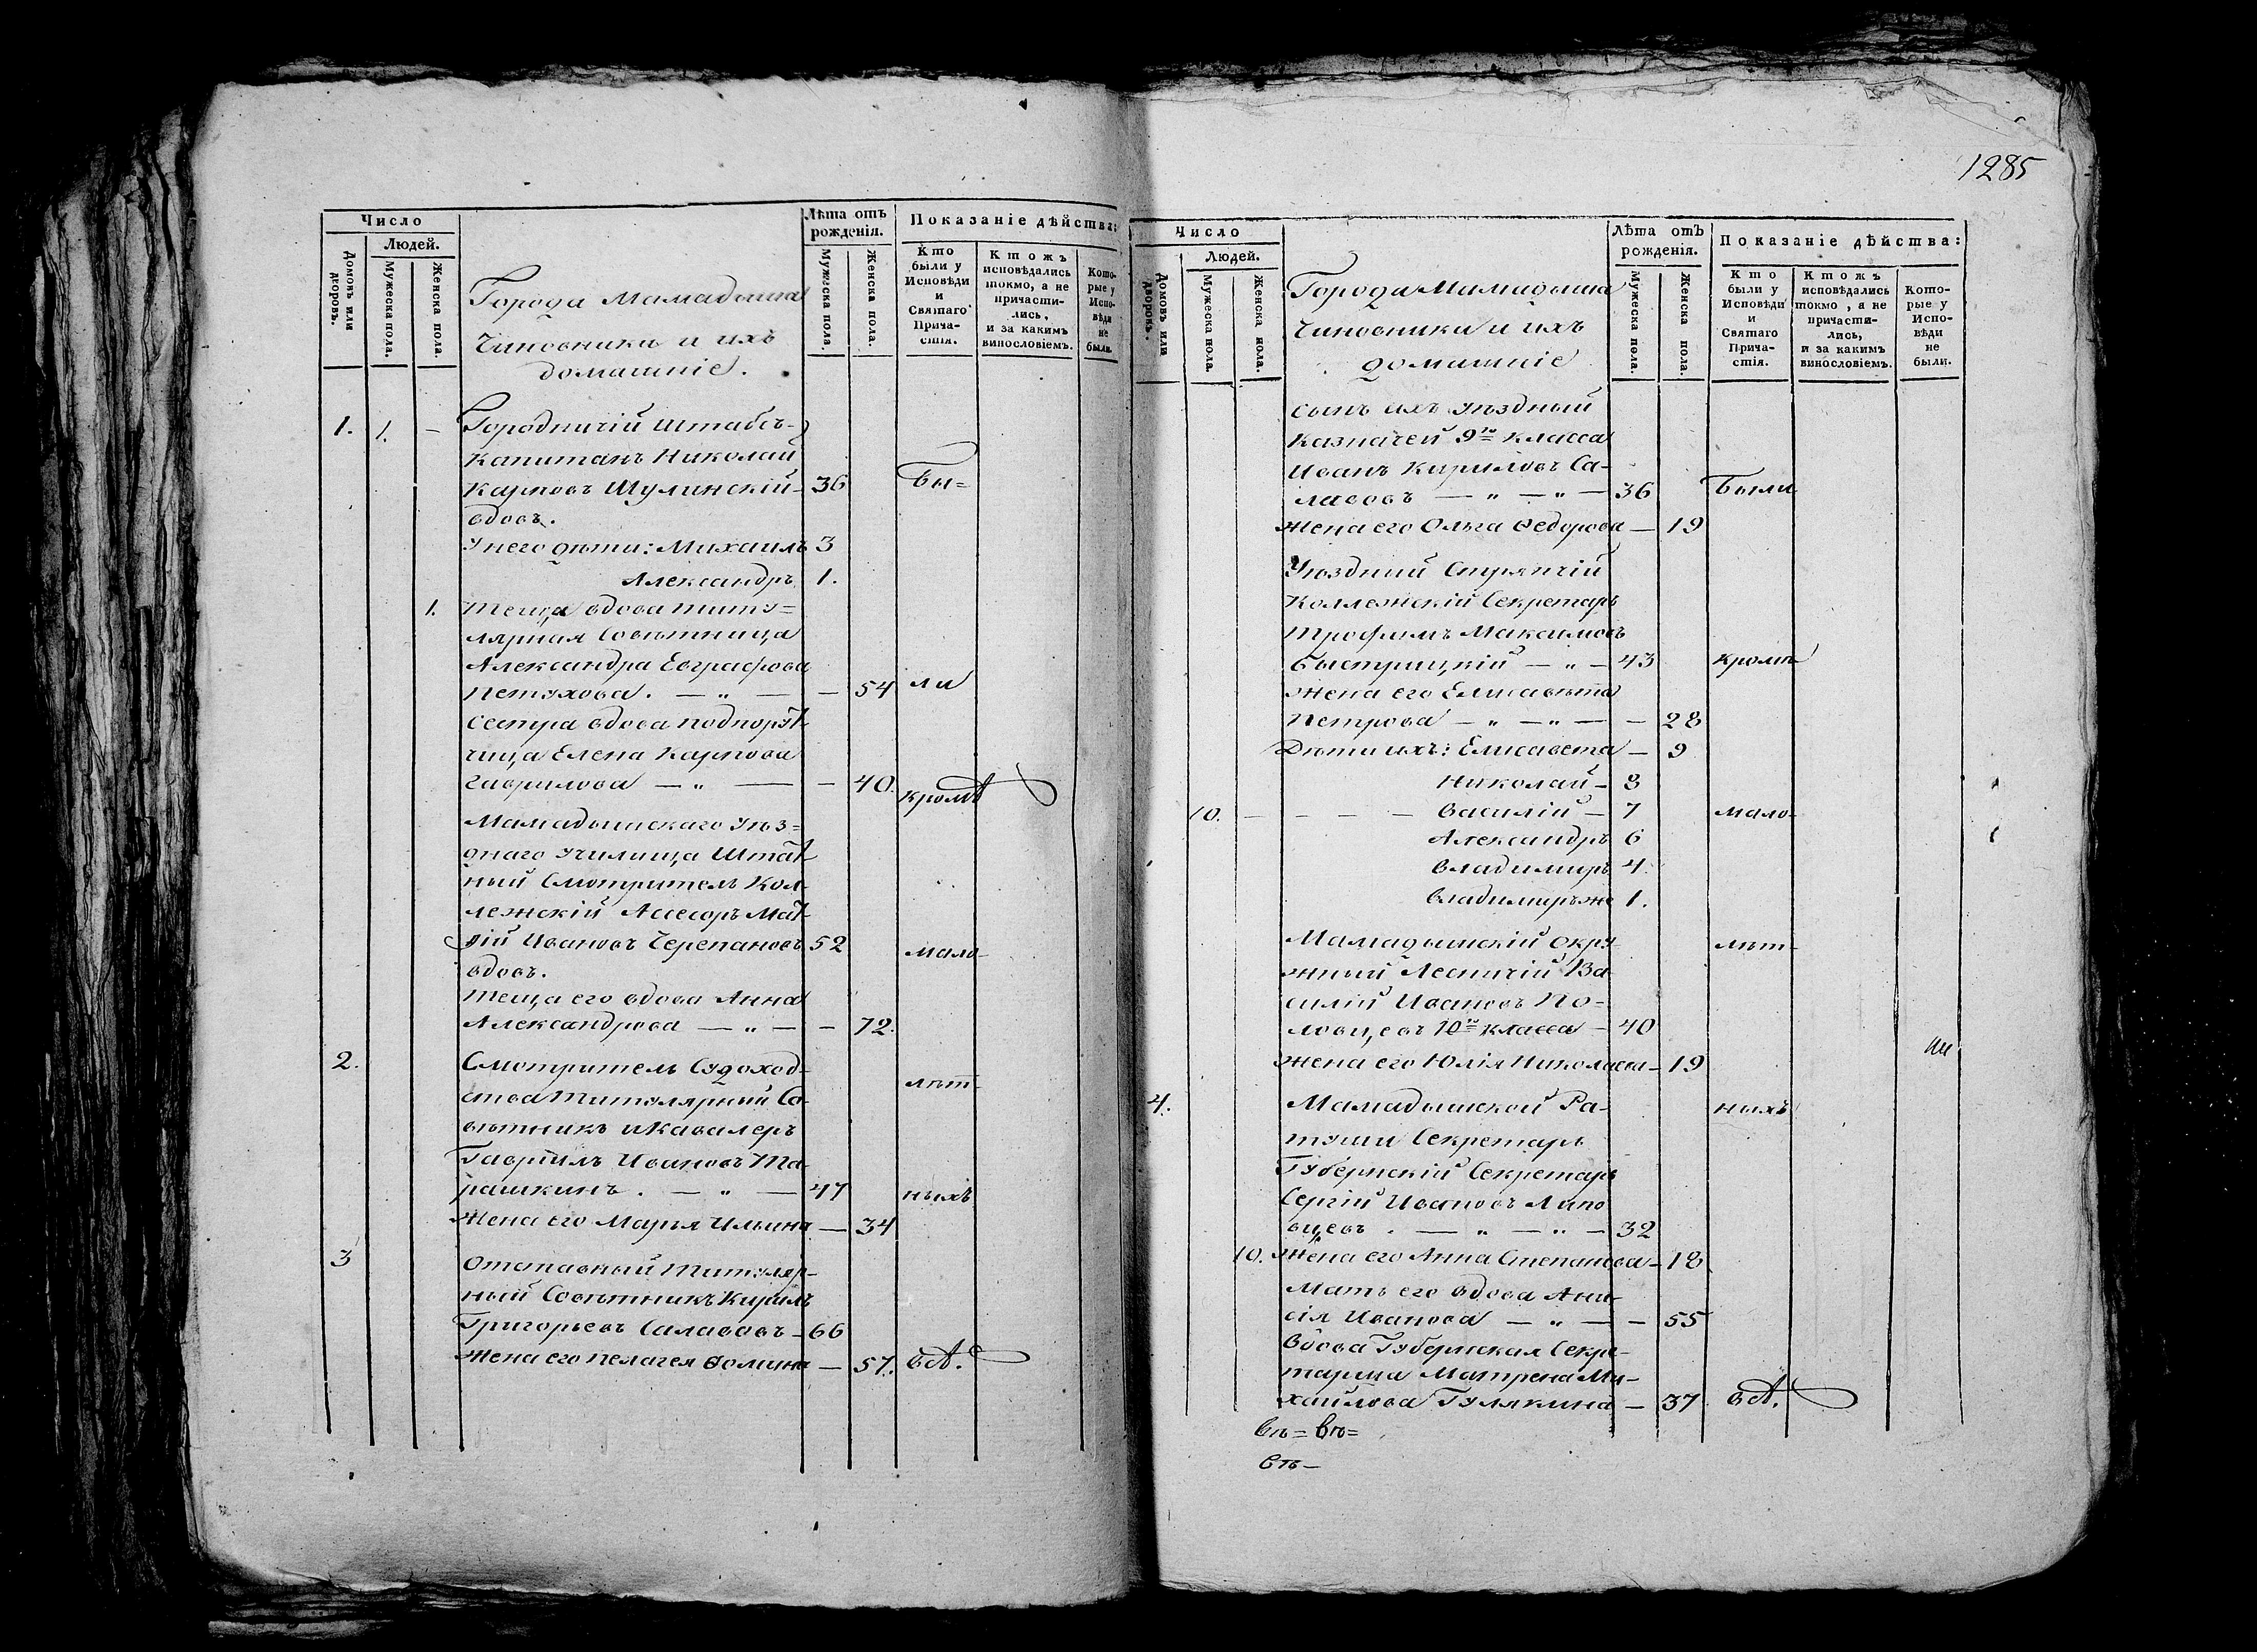 Число
Людей.
Домовъ или дворовъ.
Мужеска пола.
Женска пола.
Лѣта отъ рожденія.
Мужеска пола.
Женска пола.
Показаніе дѣйства:
Кто были у Исповѣди и Святаго Причастія.
Ктожъ исповѣдались токмо, а не причастились, и за какимъ винословіемъ.
Которые у Исповѣди не были.
Города Мамадыша
Чиновники и ихъ
домашніе.
1. 1. — Городничій Штабсъ-
Капитанъ Николай
Карповъ Шулинскій — 36 Бы=
вдовъ.
У него дѣти: Михаилъ 3
Александръ 1.
1. Теща вдова титу=
лярная Совѣтница
Александра Евграфова
Петухова. — „ — — 54 ли
Сестра вдова подпорут-
чица Елена Карпова
Гаврилова — „ — — 40. кромѣ
Мамадышскаго Уѣз=
днаго Училища Штат-
ный Смотритель Кол-
лежскій Ассесоръ Мат-
ѳій Ивановъ Черепановъ 52 мало-
вдовъ.
Теща его вдова Анна
Александрова — „ — — 72.
2. Смотритель Судоход-
ства Титулярный Со- лѣт-
вѣтникъ и Кавалеръ
Гавриилъ Ивановъ Та-
рашкинъ. — „ — 47 ныхъ
Жена его Марья Ильина — 34
3 Отставный Титуляр-
ный Совѣтникъ Кирилъ
Григорьевъ Салавовъ — 66
Жена его Пелагея Ѳомина — 57. всѣ.
1285
Число
Людей.
Домовъ или дворовъ.
Мужеска пола.
Женска пола.
Лѣта отъ рожденія.
Мужеска пола.
Женска пола.
Показаніе дѣйства:
Кто были у Исповѣди и Святаго Причастія.
Ктожъ исповѣдались токмо, а не причастились, и за какимъ винословіемъ.
Которые у Исповѣди не были.
Города Мамадыша
Чиновники и ихъ
домашніе
Сынъ ихъ уѣздный
Казначей 9го класса
Иванъ Кириловъ Са-
лавовъ — „ — „ — 36 Были
Жена его Ольга Ѳедорова — 19
Уѣздный Стряпчій
Коллежскій Секретарь
Трофимъ Максимовъ
Быстрицкій — „ — 43 кромѣ
Жена его Елисавета
Петрова — „ — „ — — 28
Дѣти ихъ: Елисавета — 9
Николай — 8
10. — — — — Василій — 7 мало-
Александръ 6
Владимиръ 4.
Владимиръ же 1.
Мамадышскій окру- лѣт-
жный Лесничій Ва
силій Ивановъ По-
ловцевъ 10го класса — 40
Жена его Юлія Николаева — 19
4. Мамадышской Ра- ныхъ
туши Секретарь
Губернскій Секретарь
Сергій Ивановъ Липо
вцевъ. — „ — „ — 32
10. Жена его Анна Степанова — 18
Мать его вдова Ани-
сія Иванова — „ — — 55
Вдова Губернская Секре-
тарша Матрена Ми-
хайлова Гулякина — 37 всѣ.